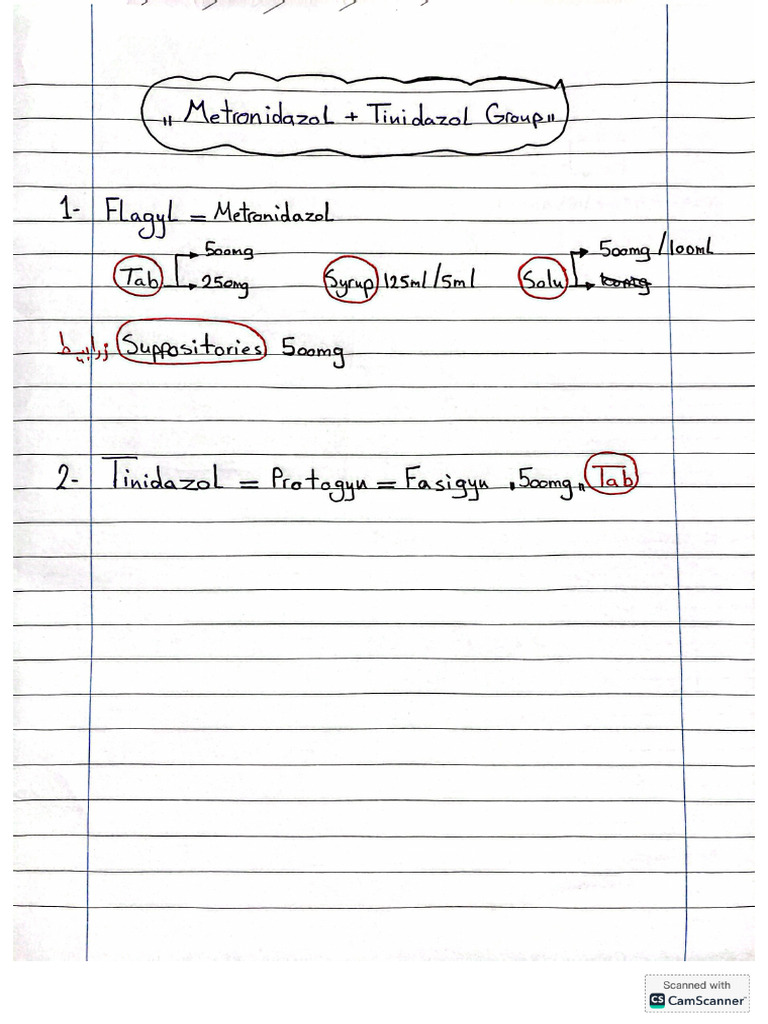 "Metronidazol + Tinidazol Group"
1- Flagyl = Metronidazol
Tab 500mg 250mg Syrup 125ml/5ml Solu 500mg/100ml
Suppositories 500mg
2- Tinidazol = Protogyn = Fasigyn "500mg" Tab
Scanned with
CS CamScanner